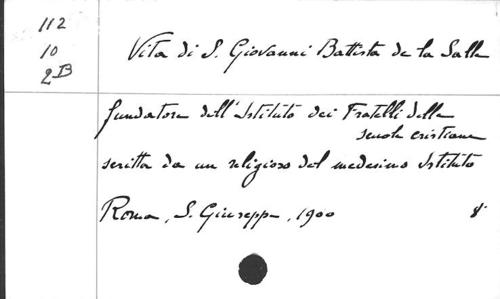 112
10
2 B
Vita di S. Giovanni Battista de la Salle
fundatore dell'Istituto dei Fratelli delle
scuole cristiane
scritta da un religioso del medesimo Istituto
Roma, S. Giuseppe, 1900 8°